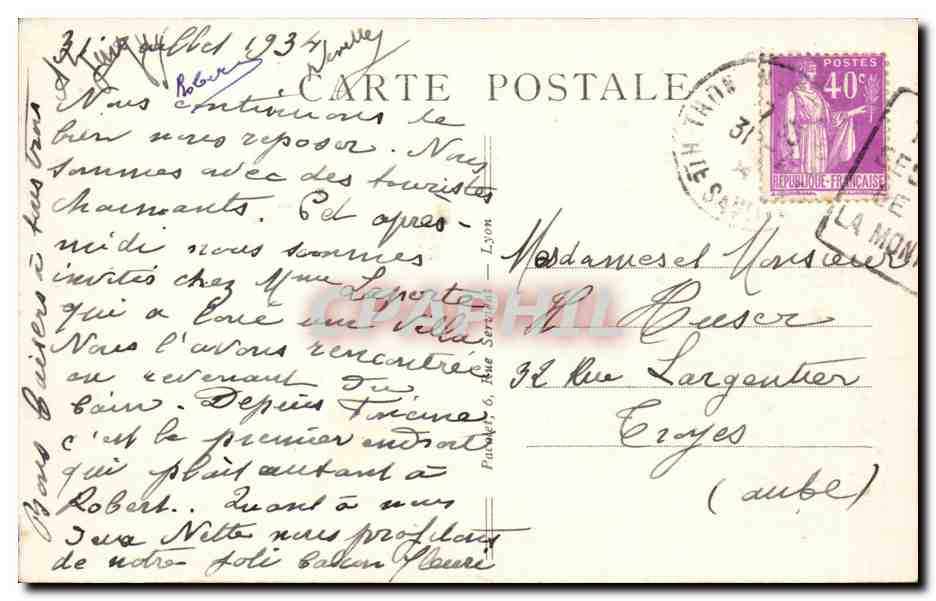 31 Juillet 1934
Robert
CARTE POSTALE
Nous continuons le
bien nous reposer. Nous
sommes avec des touristes
charmants. Cet après-
midi nous sommes
invités chez Mme Laporte
qui a loué une villa
Nous l'avons rencontrée
en revenant du
bain. Depuis
c'est le premier endroit
qui plaît autant à
Robert.. Quant à nous
Nette nous profitons
de notre joli balcon fleuri
Bons baisers à tous trois
Pacalet, 6, Rue Servient - Lyon
CPAPHIL
POSTES
40c
REPUBLIQUE-FRANÇAISE
THON
31
HTE SAV
LA MON
Mesdames et Monsieur
H Huser
32 Rue Largentier
Troyes
(aube)